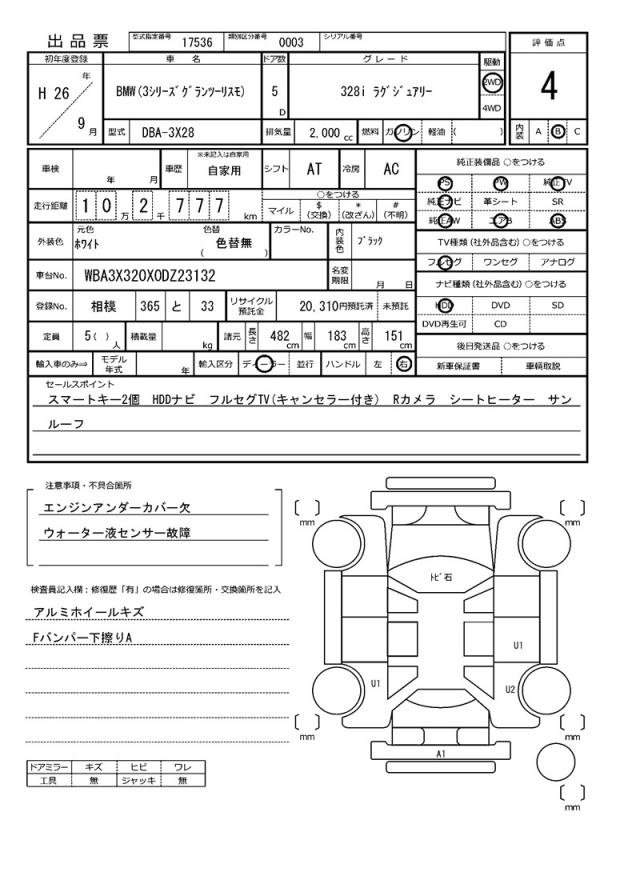 出品票 型式指定番号 17536 類別区分番号 0003 シリアル番号
初年度登録 車 名 ドア数 グレード 駆動 評価点
H 26 年 9 月 BMW(3シリーズグランツーリスモ) 5 D 328i ラグジュアリー 2WD 4WD 4
型式 DBA-3X28 排気量 2,000 cc 燃料 ガソリン 軽油 ( ) 内装 A B C
車検 年 月 車歴 ※未記入は自家用 自家用 シフト AT 冷房 AC
走行距離 10 万 2 千 777 km ○をつける マイル $ (交換) * (改ざん) # (不明)
外装色 元色 ホワイト 色替 色替無 ( ) カラーNo. 内装色 ブラック
車台No. WBA3X320X0DZ23132 名変期限 月 日
登録No. 相模 365 と 33 リサイクル預託金 20,310円預託済 未預託
定員 5( )人 積載量 kg 諸元 長さ 482 cm 幅 183 cm 高さ 151 cm
輸入車のみ⇒ モデル年式 年 輸入区分 ディーラー 並行 ハンドル 左 右
純正装備品 ○をつける
PS PW 純正TV
純正ナビ 革シート SR
純正AW エアB ABS
TV種類(社外品含む) ○をつける
フルセグ ワンセグ アナログ
ナビ種類(社外品含む) ○をつける
HDD DVD SD
DVD再生可 CD
後日発送品 ○をつける
新車保証書 車輌取説
セールスポイント
スマートキー2個 HDDナビ フルセグTV(キャンセラー付き) Rカメラ シートヒーター サン
ルーフ
注意事項・不具合箇所
エンジンアンダーカバー欠
ウォーター液センサー故障
検査員記入欄:修復歴「有」の場合は修復箇所・交換箇所を記入
アルミホイールキズ
Fバンパー下擦りA
ドアミラー キズ ヒビ ワレ
工具 無 ジャッキ 無
mm mm
トビ石
U1
U1 U2
mm mm
A1
mm